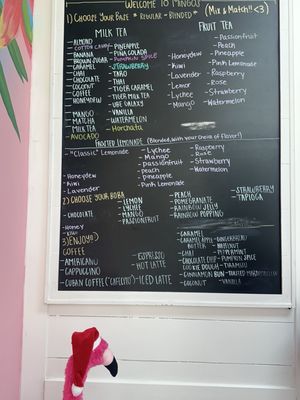 WELCOME TO MANGOS
1) CHOOSE YOUR BASE * REGULAR - BLENDED * (Mix & Match!! <3)
MILK TEA
- ALMOND
- COTTON CANDY
- BANANA
- BROWN SUGAR
- CARAMEL
- CHAI
- CHOCOLATE
- COCONUT
- COFFEE
- HONEYDEW
- MANGO
- MATCHA
- MILK TEA
- AVOCADO
- PINEAPPLE
- PINA COLADA
- PUMPKIN SPICE
- STRAWBERRY
- TARO
- THAI
- TIGER CARAMEL
- TIGER MILK TEA
- UBE GALAXY
- VANILLA
- WATERMELON
- Horchata
FRUIT TEA
- Honeydew
- Kiwi
- Lavender
- Lemon
- Lychee
- Mango
- Passionfruit
- Peach
- Pineapple
- Pink Lemonade
- Raspberry
- Rose
- Strawberry
- Watermelon
FROSTED LEMONADE (Blended, with your Choice of Flavor!)
- "Classic" Lemonade
- Honeydew
- Kiwi
- Lavender
- Lychee
- Mango
- Passionfruit
- Peach
- Pineapple
- Pink Lemonade
- Raspberry
- Rose
- Strawberry
- Watermelon
2) CHOOSE YOUR BOBA
- CHOCOLATE
- Honey
- Kiwi
- LEMON
- LYCHEE
- MANGO
- PASSIONFRUIT
- PEACH
- POMEGRANATE
- RAINBOW JELLY
- RAINBOW POPPING
- STRAWBERRY
- TAPIOCA
3) ENJOY!!
COFFEE
AMERICANO
CAPPUCCINO
CUBAN COFFEE ("CAFECITO")
- ESPRESSO
- HOT LATTE
- ICED LATTE
- CARAMEL
- CARAMEL APPLE BUTTER
- CHAI
- CHOCOLATE CHIP COOKIE DOUGH
- CINNAMON BUN
- COCONUT
- GINGERBREAD
- HAZELNUT
- PEPPERMINT
- PUMPKIN SPICE
- TIRAMISU
- TOASTED MARSHMALLOW
- VANILLA